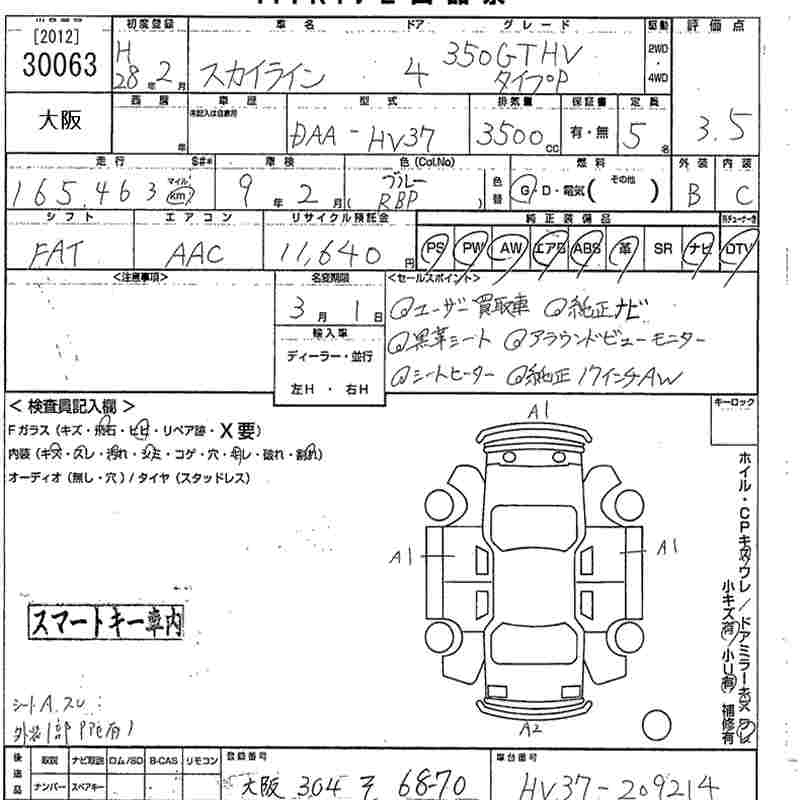 [2012]
30063
初度登録 車名 ドア グレード 駆動 評価点
H 28年 2月 スカイライン 4 350GT HV タイプP 2WD・4WD 3.5
大阪
西暦 車歴 型式 排気量 保証書 定員
年 未記入は自家用 DAA-HV37 3500cc 有・無 5名
走行 S#* 車検 色(Col,No) 燃料 外装 内装
165,463 マイル km 9年 2月 ブルー RBP 色替 G・D・電気( その他 ) B C
シフト エアコン リサイクル預託金 純正装備品
FAT AAC 11,640円 PS PW AW エアB ABS 革 SR ナビ DTV
<注意事項> 名変期限 <セールスポイント>
3月 1日 ユーザー買取車 純正ナビ
輸入車 黒革シート アラウンドビューモニター
ディーラー・並行 シートヒーター 純正17インチAW
左H・右H
キーロック
<検査員記入欄>
Fガラス(キズ・飛石・ヒビ・リペア跡・X要)
内装(キズ・スレ・汚れ・シミ・コゲ・穴・切レ・破れ・割れ)
オーディオ(無し・穴)/タイヤ(スタッドレス)
A1
A1 A1
A2
ホイル・CPキズ/ワレ/ドアミラーキズ/ワレ
小キズ有/小U有 補修有
スマートキー車内
シートA.スレ
後送品 取説 ナビ取説 ロム/SD B-CAS リモコン 登録番号 車台番号
ナンバー スペアキー 大阪 304 そ 6870 HV37-209214